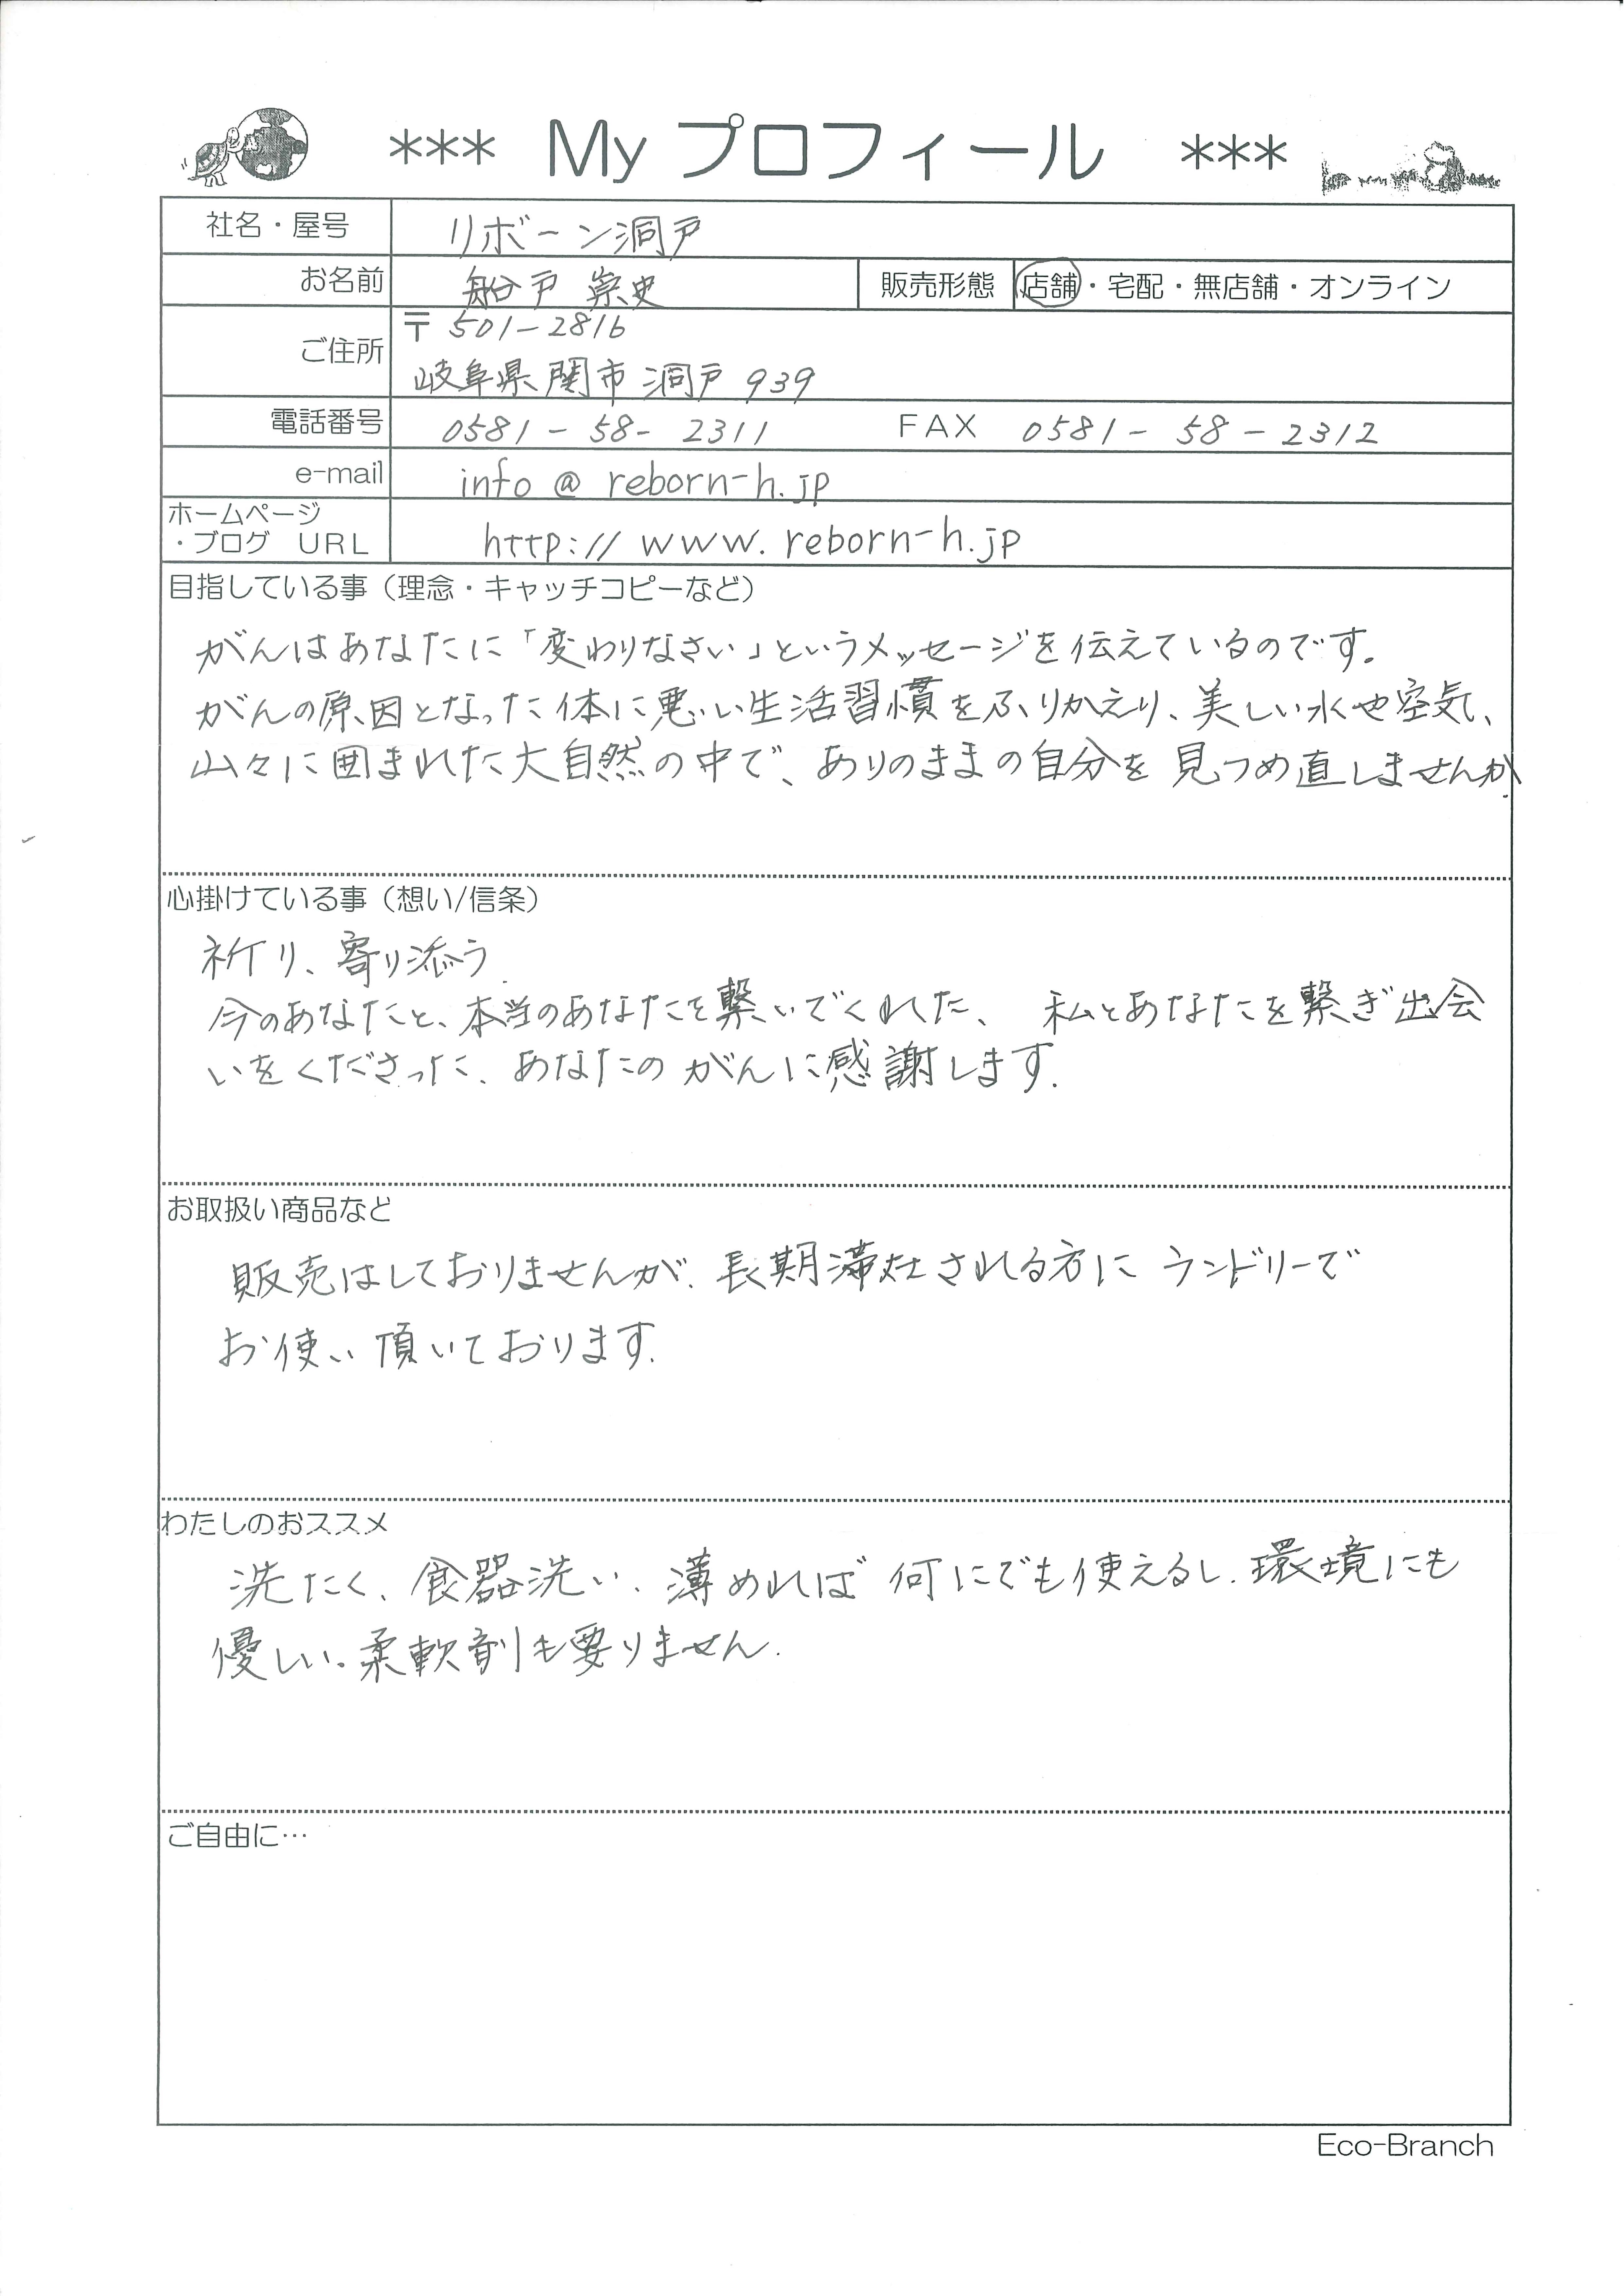 *** My プロフィール ***
社名・屋号 リボーン洞戸
お名前 船戸 崇史 販売形態 店舗・宅配・無店舗・オンライン
ご住所 〒501-2816
岐阜県関市洞戸939
電話番号 0581-58-2311 FAX 0581-58-2312
e-mail info@reborn-h.jp
ホームページ
・ブログ URL http://www.reborn-h.jp
目指している事（理念・キャッチコピーなど）
がんはあなたに「変わりなさい」というメッセージを伝えているのです。
がんの原因となった体に悪い生活習慣をふりかえり、美しい水や空気、
山々に囲まれた大自然の中で、ありのままの自分を見つめ直しませんか。
心掛けている事（想い/信条）
祈り、寄り添う
今のあなたと、本当のあなたを繋いでくれた、 私とあなたを繋ぎ出会
いをくださった、あなたのがんに感謝します。
お取扱い商品など
販売はしておりませんが、長期滞在される方にランドリーで
お使い頂いております。
わたしのおススメ
洗たく、食器洗い、薄めれば何にでも使えるし、環境にも
優しい。柔軟剤も要りません。
ご自由に…
Eco-Branch